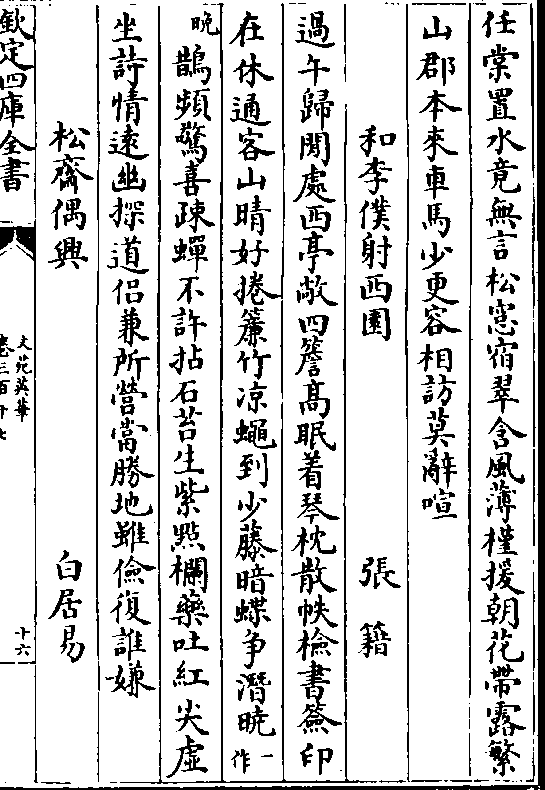 任棠置水竟無言松窓宿翠含風薄槿援朝花帶露繁
山郡本來車馬少更容相訪莫辭喧
和李僕射西園 張籍
過午歸閒處西亭敞四簷髙眠着琴枕散帙檢書籖印
在休通客山晴好捲簾竹凉蠅到少藤暗蝶争潛曉一作
晚鵲頻驚喜疎蟬不許拈石苔生紫㸃欄藥吐紅尖虛
坐詩情逺幽探道侣兼所營當勝地雖儉復誰嫌
松齋偶興 白居易
欽定四庫全書
文苑英華
卷三百十七
十六